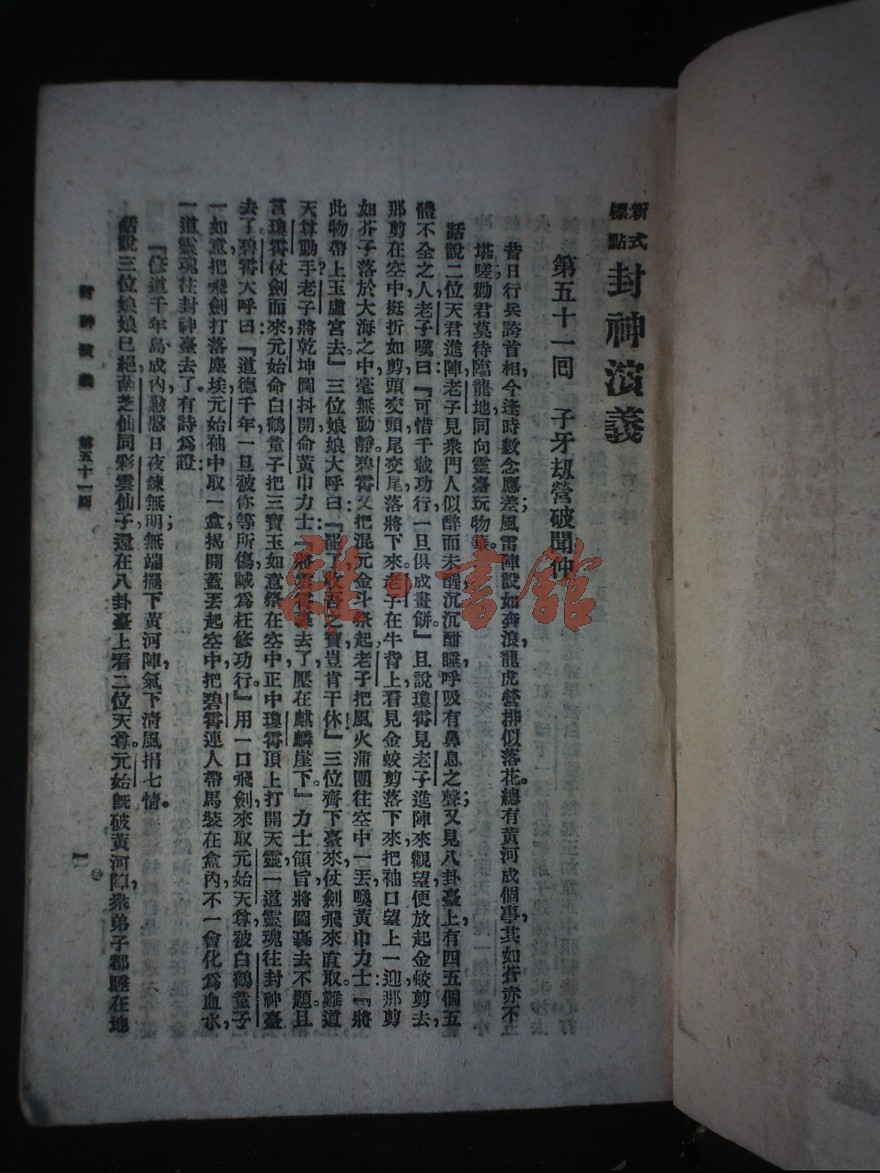 新式
標點
封神演義
第五十一回　子牙刼營破聞仲
昔日行兵誇首相，今逢時數念應差。風雷陣設如奔浪，龍虎營排似落花。總有黃河成個事，其如蒼赤不
堪嗟。勸君莫待臨龍地，同向靈臺玩物華。
話說二位天君進陣，老子見衆門人似醉而未醒，沉沉酣睡，呼吸有鼻息之聲；又見八卦臺上有四五個五
體不全之人，老子嘆曰：『可惜千載功行，一旦俱成畫餅』且說瓊霄見老子進陣來觀望，便放起金蛟剪去，
那剪在空中挺折如剪，頭交頭，尾交尾，落將下來。老子在牛背上看見金蛟剪落下來，把袖口望上一迎，那剪
如芥子落於大海之中，毫無動靜。碧霄又把混元金斗祭起，老子把風火蒲團往空中一丟，喚黃巾力士：『將
此物帶上玉虛宮去』三位娘娘大呼曰：『罷了，收吾之寶，豈肯干休』三位齊下臺來，仗劍飛來直取，難道
天尊動手？老子將乾坤圖抖開，命黃巾力士：『將雲霄裹去了，壓在麒麟崖下』力士領旨，將圖裹去不題。且
言瓊霄仗劍而來，元始命白鶴童子把三寶玉如意祭在空中，正中瓊霄頂上，打開天靈，一道靈魂往封神臺
去了。碧霄大呼曰：『道德千年，一旦被你等所傷，誠爲枉修功行』用一口飛劍來取元始天尊，被白鶴童子
一如意把飛劍打落塵埃。元始袖中取一盒，揭開蓋，丟起空中，把碧霄連人帶馬裝在盒內，不一會化爲血水，
一道靈魂往封神臺去了。有詩爲證：
『修道千年島成內，慇懃日夜鍊無明；無端擺下黃河陣，氣下清風損七情。
話說三位娘娘已絕，菡芝仙同彩雲仙子還在八卦臺上，看二位天尊。元始旣破黃河陣，衆弟子都睡在地
封神演義　第五十一回
一
雜·書館